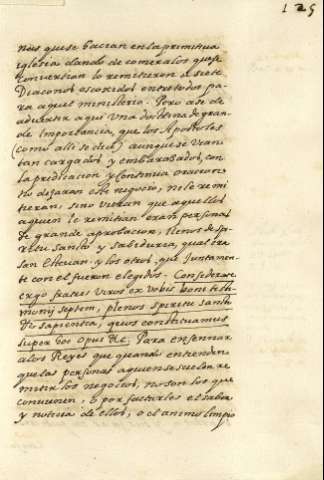 125
nes que se hacian en la primitiua
iglesia dando de comer a los que se
conuertian lo remitieron a siete
Diaconos escogidos entre todos pa-
ra aquel ministerio. Pero a se de
aduertir aqui Vna doctrina de gran-
de importancia, que los Apostoles
(como alli se dice) aunque se vian
tan cargados y embaraçados, con
la predicacion y continua oracion,
no dexaran este negocio, ni le remi-
tieran, sino vieran que aquellos
a quien le remitian eran personas
de grande aprobacion, llenos de spi-
ritu santo y sabiduria, qual era
san Esteuan. y los otros, que juntamen-
te con el fueron elegidos. Considerate
ergo fratres viros ex vobis boni testi-
monij septem, plenos spiritu sancto
et sapientia, quos constituamus
super hoc opus &c. Para enseñar
a los Reyes que quando entienden
que las personas a quien se suelen re-
mitir los negocios, no son los que
conuienen, o por faltarles el saber
y noticia de ellos, o el animo limpio